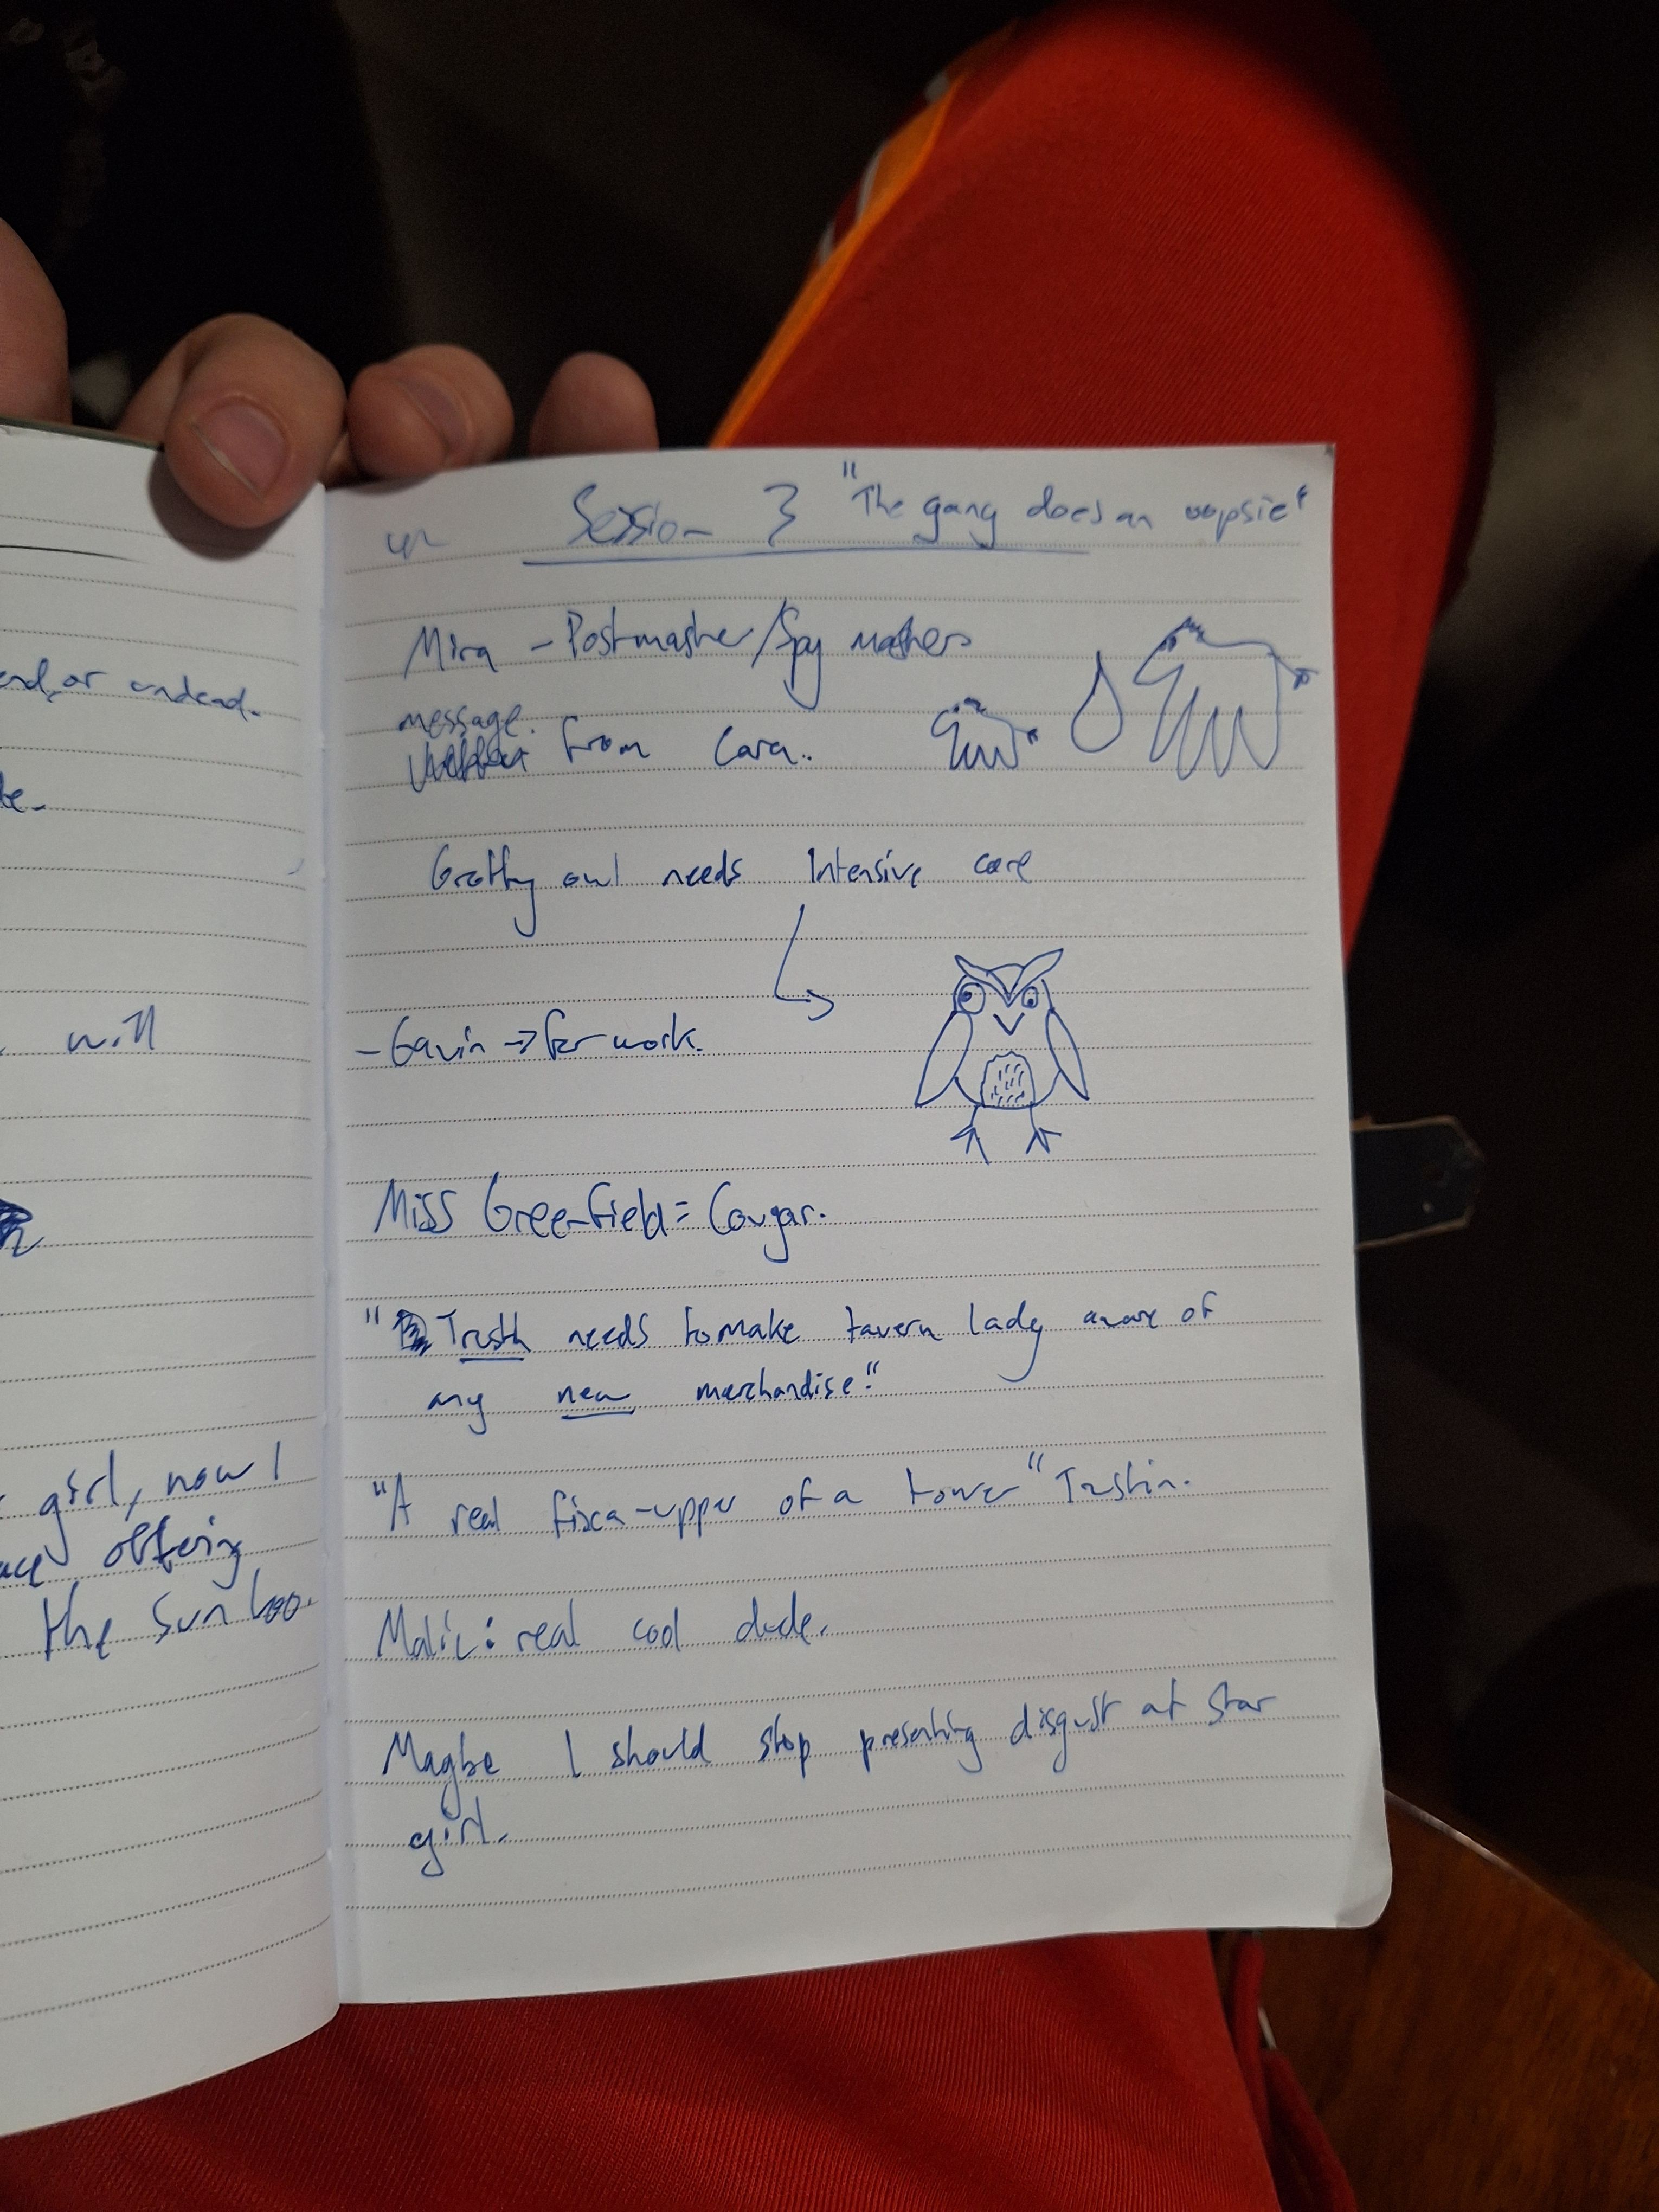 end, or undead.
te.
will
girl, now I
offering
the sun too.
Session 3 "The gang does an oopsie"
Mira - Postmaster/Spy masters
message.
from Cara..
Grotty owl needs Intensive care
- Gavin -> for work.
Miss Greenfield = Cougar.
" needs to make tavern lady aware of
any new merchandise."
"A real fixa-upper of a tower"
Malic: real cool dude.
Maybe I should stop presenting disgust at star
girl.